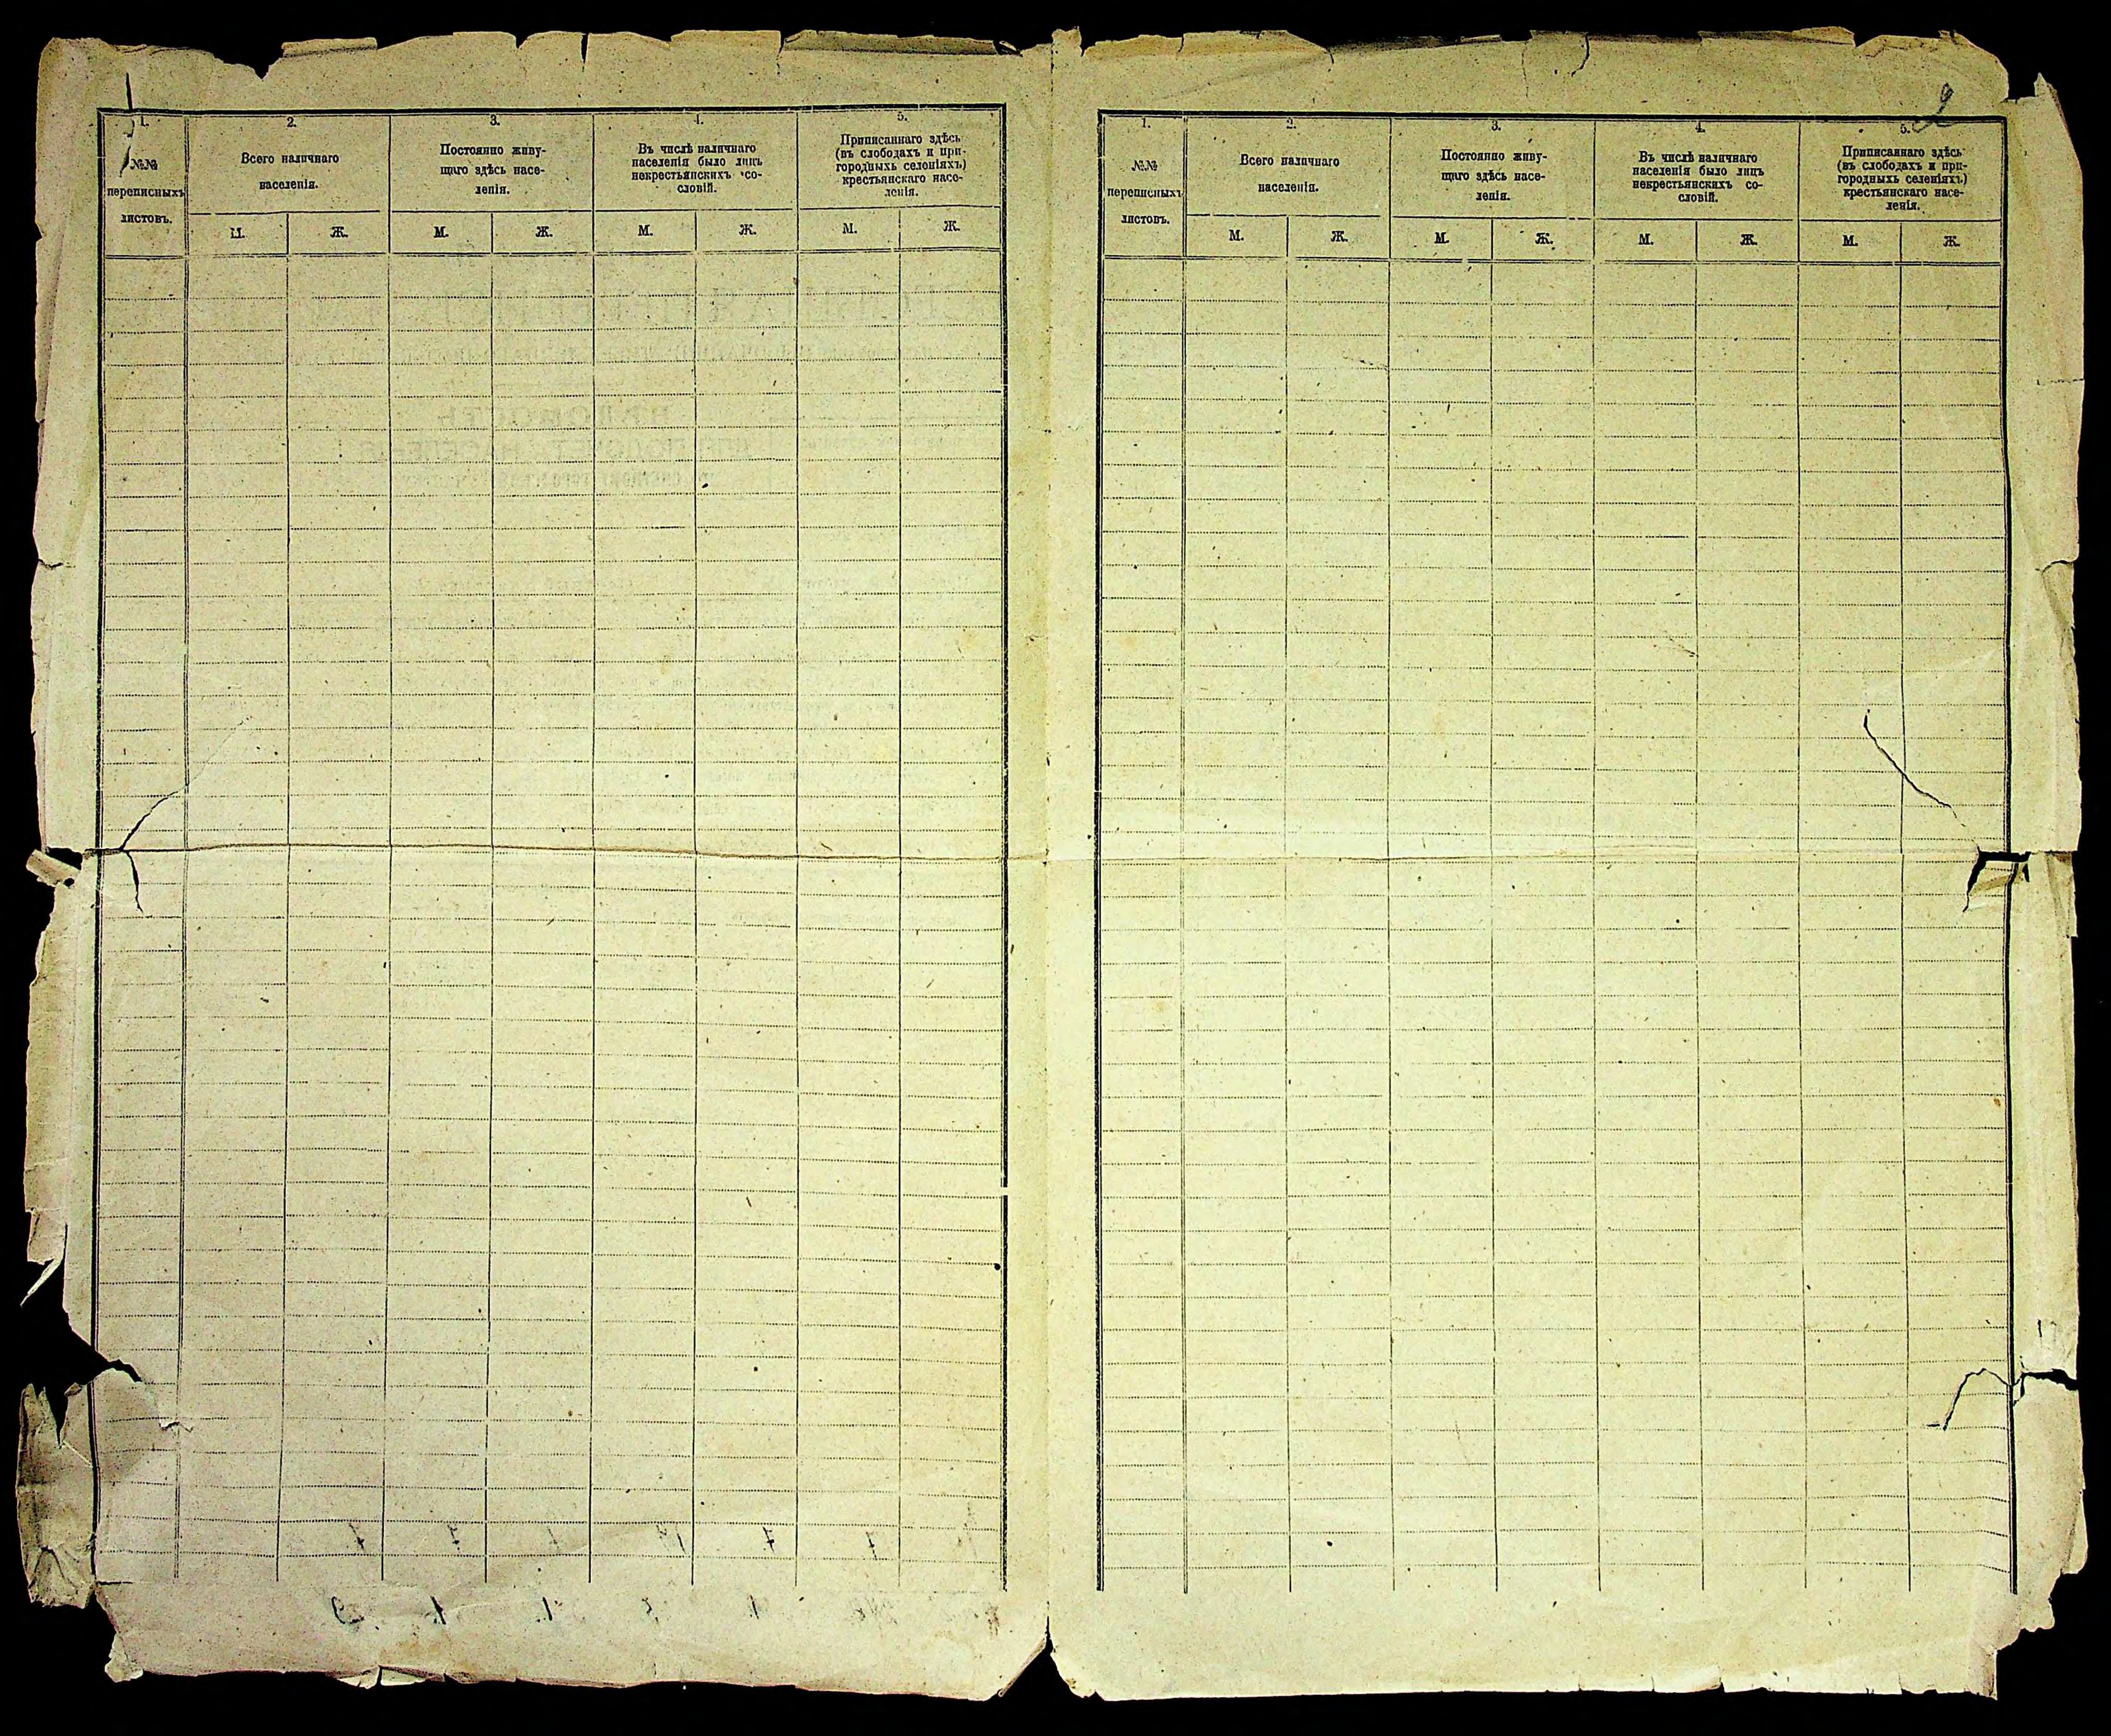 1.
№№
переписныхъ
листовъ.
2.
Всего наличнаго
населенія.
М. Ж.
3.
Постоянно живу-
щаго здѣсь насе-
ленія.
М. Ж.
4.
Въ числѣ наличнаго
населенія было лицъ
некрестьянскихъ со-
словій.
М. Ж.
5.
Приписаннаго здѣсь
(въ слободахъ и при-
городныхъ селеніяхъ)
крестьянскаго насе-
ленія.
М. Ж.
2
1.
№№
переписныхъ
листовъ.
2.
Всего наличнаго
населенія.
М. Ж.
3.
Постоянно живу-
щаго здѣсь насе-
ленія.
М. Ж.
4.
Въ числѣ наличнаго
населенія было лицъ
некрестьянскихъ со-
словій.
М. Ж.
5.
Приписаннаго здѣсь
(въ слободахъ и при-
городныхъ селеніяхъ)
крестьянскаго насе-
ленія.
М. Ж.